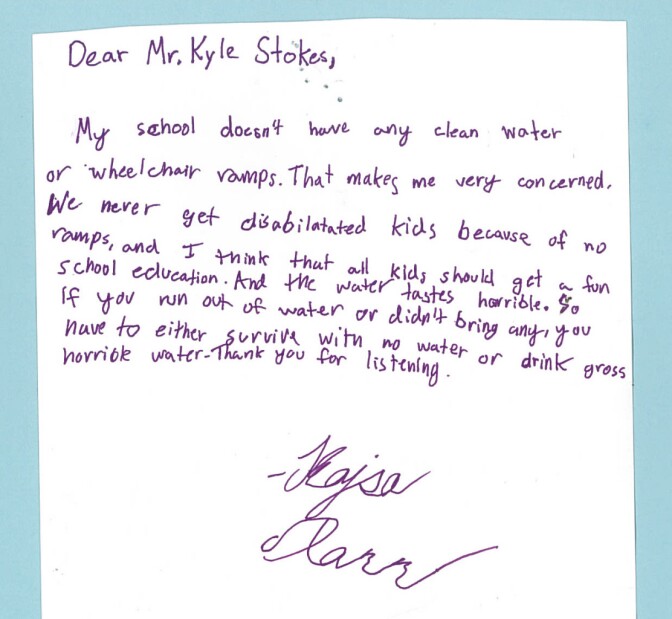 Dear Mr. Kyle Stokes,
My school doesn't have any clean water
or wheelchair ramps. That makes me very concerned.
We never get disabilatated kids because of no
ramps, and I think that all kids should get a fun
school education. And the water tastes horrible. So
If you run out of water or didn't bring any, you
have to either survive with no water or drink gross
horrible water-Thank you for listening.
-Kajsa